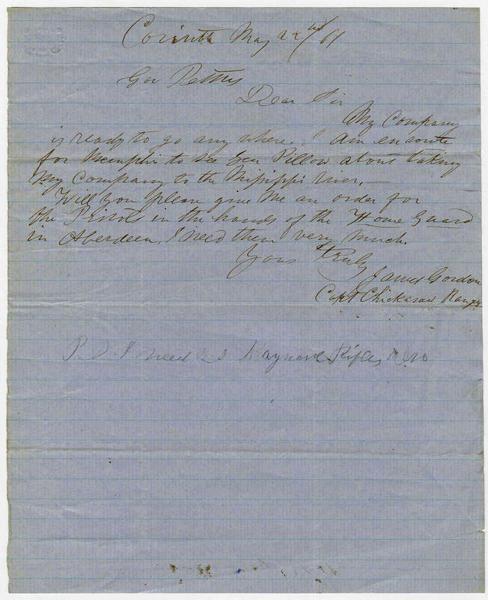 Corinth May 22nd/61
Gov Pettus
Dear Sir
My Company
is ready to go any where. I am en route
for Memphis to see Gen Pillow about taking
My Company to the Mississippi river.
Will you please give me an order for
the Pistols in the hands of the Home Guard
in Aberdeen, I need them very much.
Yours Truly
James Gordon
Capt Chickasaw Rangrs
P. S. I need Maynard Rifles